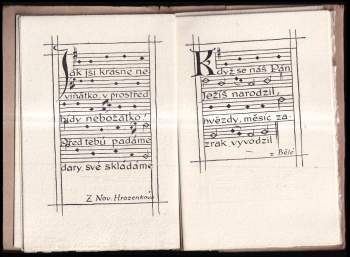 Jak jsi krásné ne
viňátko, v prostřed
bídy nebožátko!
Před tebú padáme
dary své skládáme
Z Nov. Hrozenkova
Když se náš Pán
Ježíš narodil,
hvězdy, měsíc za
zrak vyvodil
z Bělé